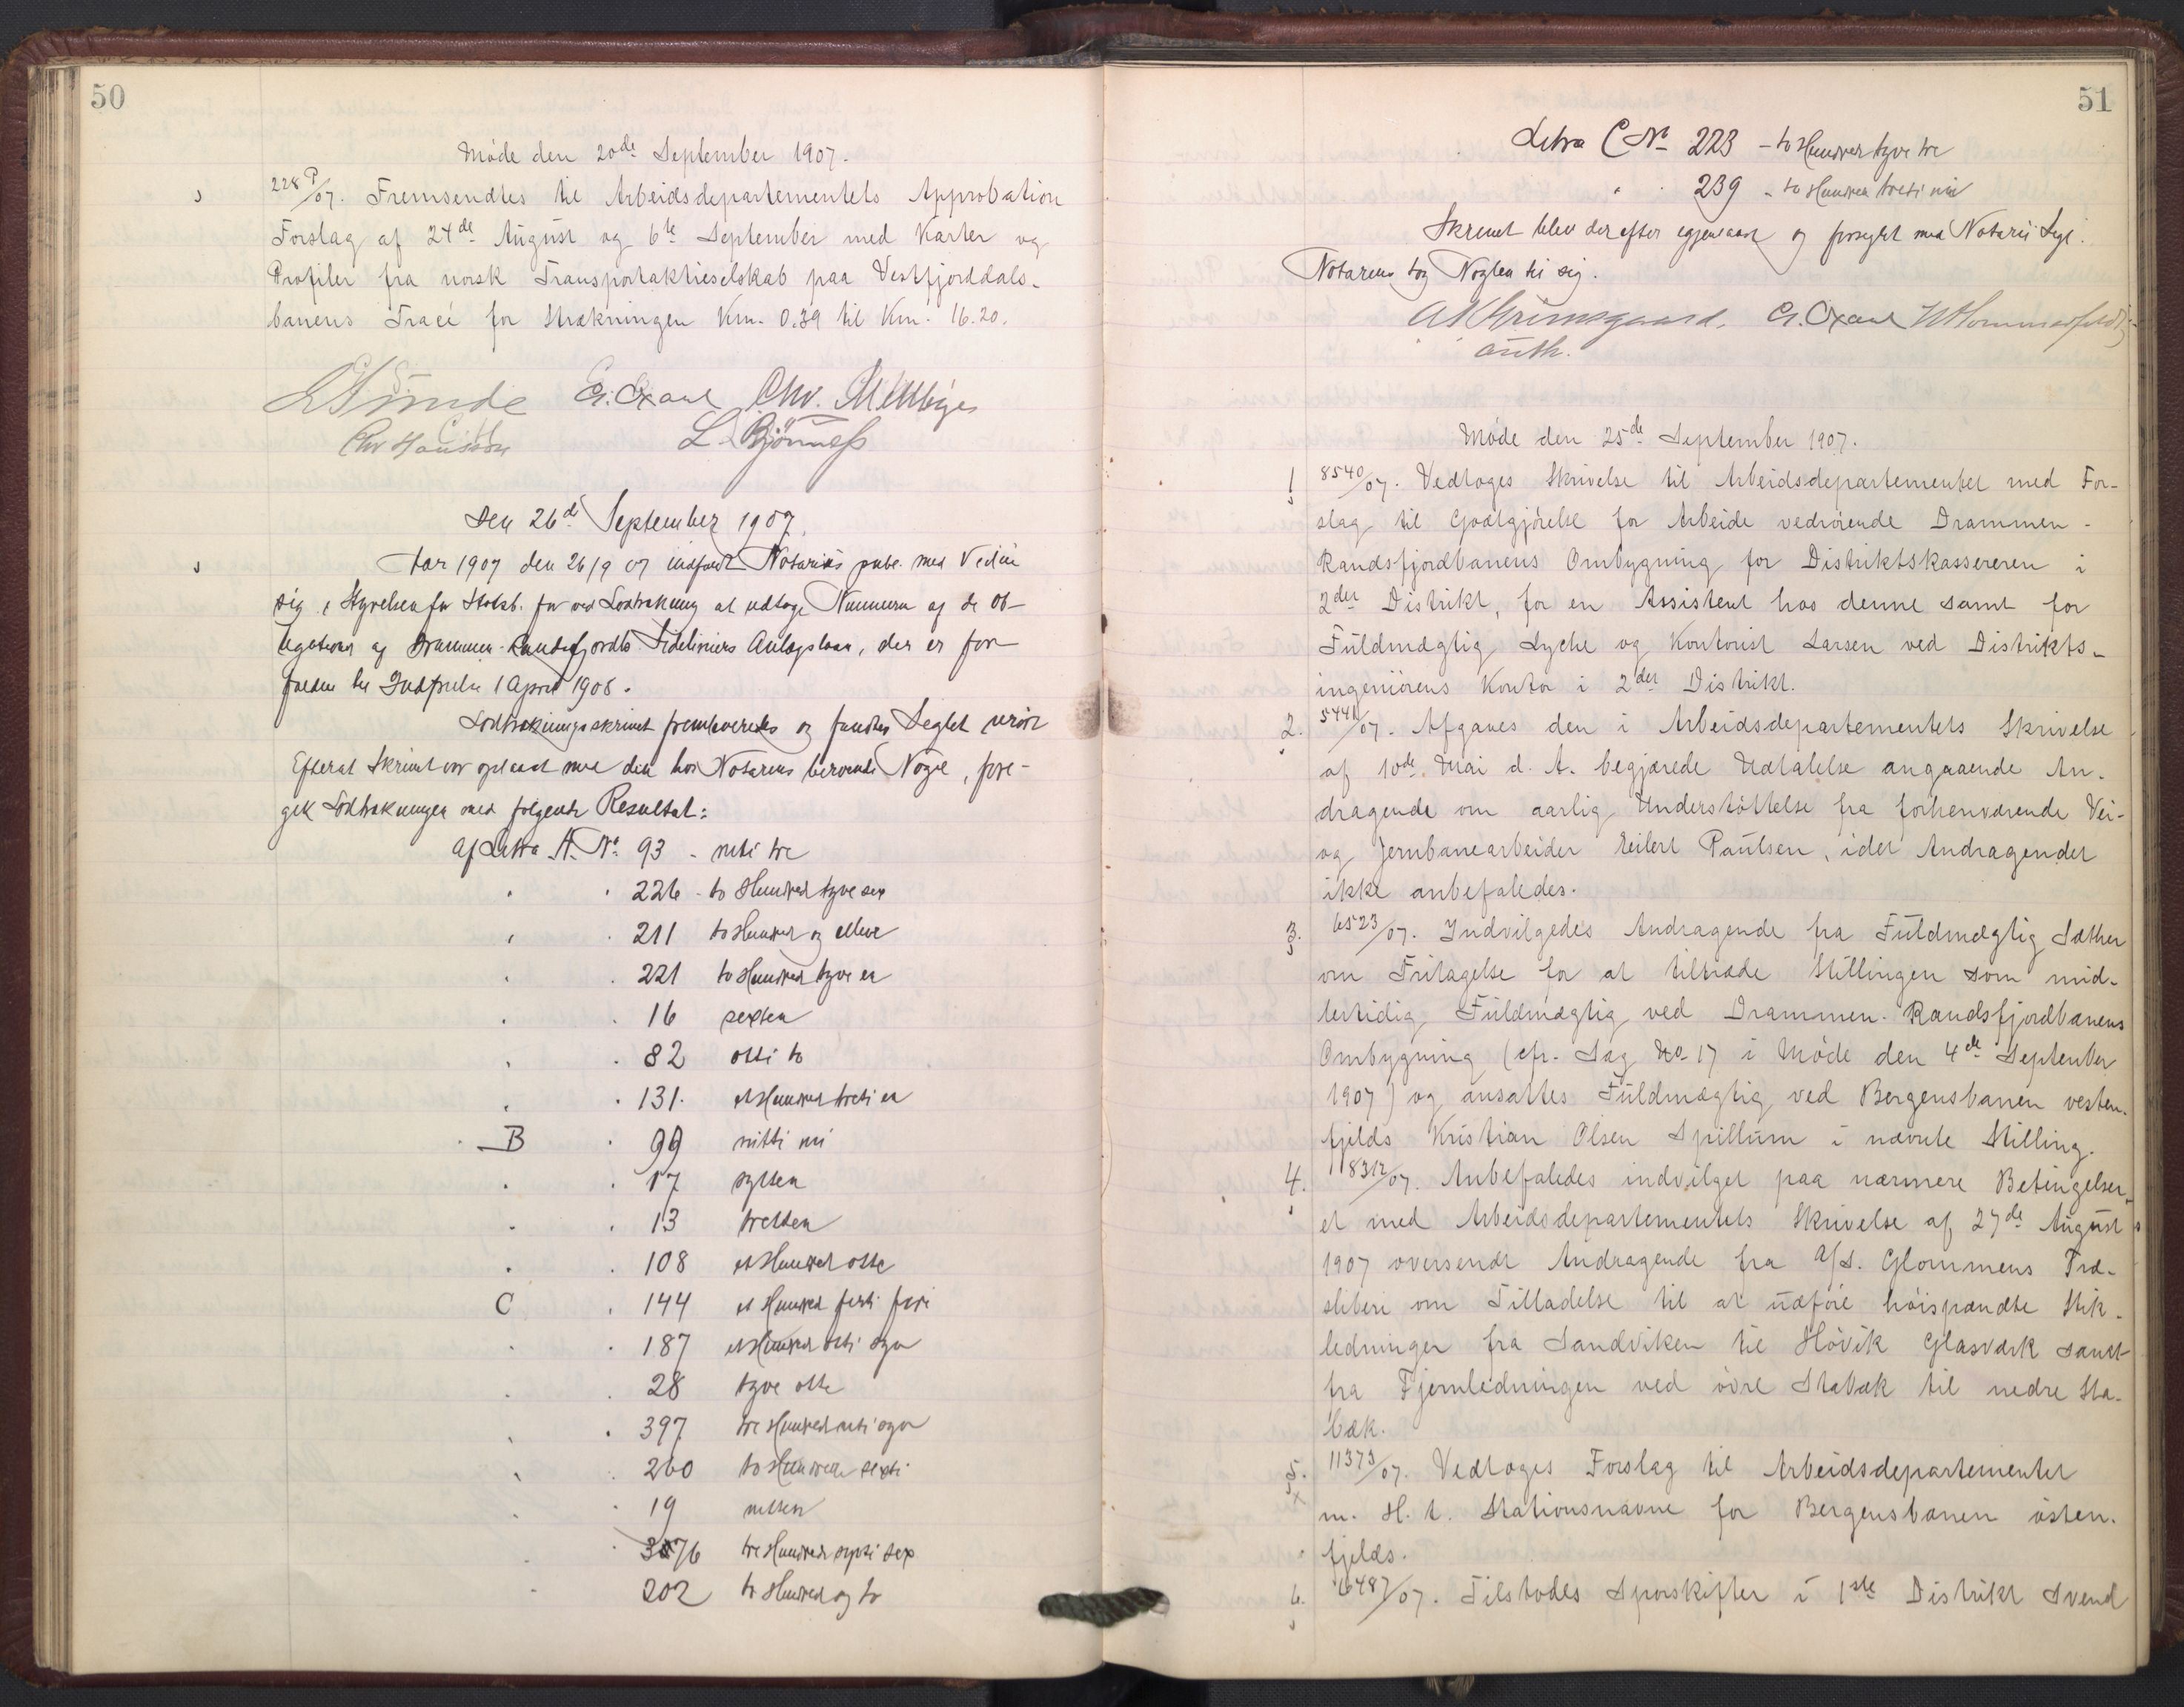 50
Møde den 20de September 1907.
228 P/07. Fremsendtes til Arbeidsdepartementets Approbation
Forslag af 24de August og 6te September med Karter og
Profiler fra norsk Transportaktieselskab paa Vestfjorddals-
banens Tracé for Strækningen Km. 0.39 til Km. 16.20.
E. Sunde G. Chr.
Chr Hansson L. Bjønness
Den 26de September 1907.
Aar 1907 den 26/9 07 indfandt Notarius publ. med Vidne
sig i Styrelsen for Statsb. for ved Lodtrækning at udtage Nummere af de Ob-
ligationer af Drammen-Randsfjords Sideliniers Anlægslaan, der er for-
falden til Indfrielse 1 April 1908.
Lodtrækningsskrinet fremleveredes og fandtes Seglet urørt
Efterat Skrinet var oplaast med den hos Notarius beroende Nøgle, fore-
gik Lodtrækningen med følgende Resultat:
Af Litra A. No. 93 - nitti tre
" " 226 - to Hundred tyve sex
" " 211 to Hundred og elleve
" " 221 to Hundred tyve en
" " 16 sexten
" " 82 otti to
" " 131. et Hundred treti en
" B " 99 nitti ni
" " 17 sytten
" " 13 tretten
" " 108 et Hundred otte
C " 144 et Hundred firti fire
" " 187 et Hundred otti syv
" " 28 tyve otte
" " 397 tre Hundred nitti syv
" " 260 to Hundrede sexti
" " 19 nitten
" " 376 tre Hundred sytti sex
" 202 to Hundred og to
51
Litra C No 223 - to Hundred tyve tre
" " 239 - to Hundred treti ni
Skrinet blev derefter igjenlaast og forseglet med Notarii Segl.
Notarius tog Nøglen til sig.
auth.
Møde den 25de September 1907.
1 8540/07. Vedtoges Skrivelse til Arbeidsdepartementet med For-
slag til Godtgjørelse for Arbeide vedrørende Drammen-
Randsfjordbanens Ombygning for Distriktskassereren i
2det Distrikt, for en Assistent hos denne samt for
Fuldmægtig Lyche og Kontorist Larsen ved Distrikts-
ingeniørens Kontor i 2det Distrikt.
2. 5441/07. Afgaves den i Arbeidsdepartementets Skrivelse
af 10de Mai d. A. begjærede Udtalelse angaaende An-
dragende om aarlig Understøttelse fra forhenværende Vei-
og Jernbanearbeider Eilert Paulsen, idet Andragendet
ikke anbefaledes.
3. 6523/07. Indvilgedes Andragende fra Fuldmægtig Sæther
om Fritagelse for at tiltræde Stillingen som mid-
lertidig Fuldmægtig ved Drammen-Randsfjordbanens
Ombygning (cfr. Sag No 17 i Møde den 4de September
1907) og ansattes Fuldmægtig ved Bergensbanen vesten-
fjelds Kristian Olsen Spillum i nævnte Stilling.
4. 8312/07. Anbefaledes indvilget paa nærmere Betingelser
et med Arbeidsdepartementets Skrivelse af 27de August
1907 oversendt Andragende fra A/S. Glommens Træ-
sliberi om Tilladelse til at udføre høispændte Stik-
ledninger fra Sandviken til Høvik Glasværk samt
fra Fjernledningen ved øvre Stabæk til nedre Sta-
bæk.
5. 11373/07. Vedtoges Forslag til Arbeidsdepartementet
m. H. t. Stationsnavne for Bergensbanen østen-
fjelds.
6. 6487/07. Tilstodes Sporskifter i 1ste Distrikt Svend